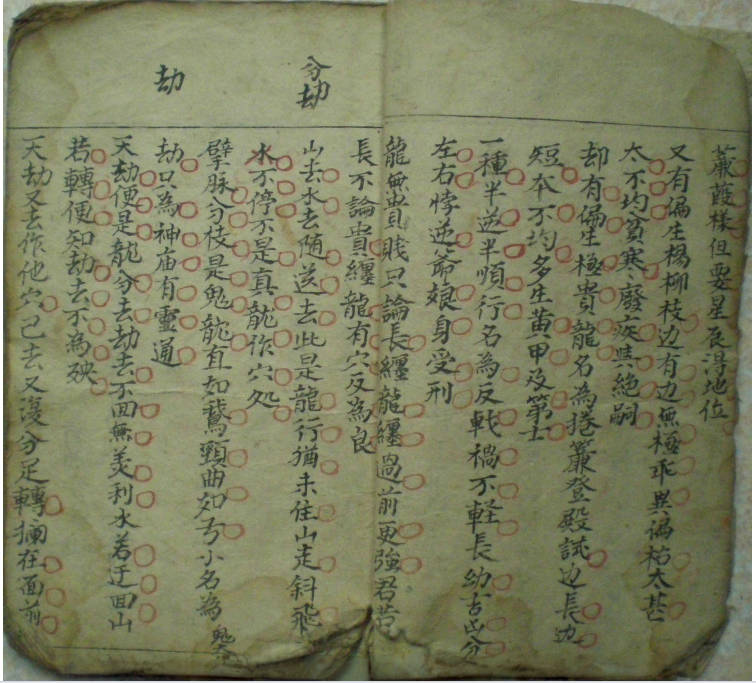 蒹葭樣但要星辰得地位
又有偏生楊柳枝边有边無極乖異禍祐太甚
太不均貧寒廢疾真絕嗣
却有偏生極貴龍名為捲簾登殿試边長边
短本不均多生黄甲及第士
一種半逆半順行名為反戟禍不軽長幼吉凶分
左右悖逆爺娘身受刑
龍無貴賎只論長纏龍纏過前更強君若
長不論貴纏龍有穴反為良
分劫
山去水去随送去此是龍行猶未住山走斜飛
水不停不是真龍作穴処
擘脉分枝是鬼龍直如鵝頸曲如弓小名為
劫
劫只為神庙有靈通
天劫便是龍分去劫去不回無美利水若迂回山
若轉便知劫去不為殃
天劫又去作他穴己去又復分足轉攔在面前